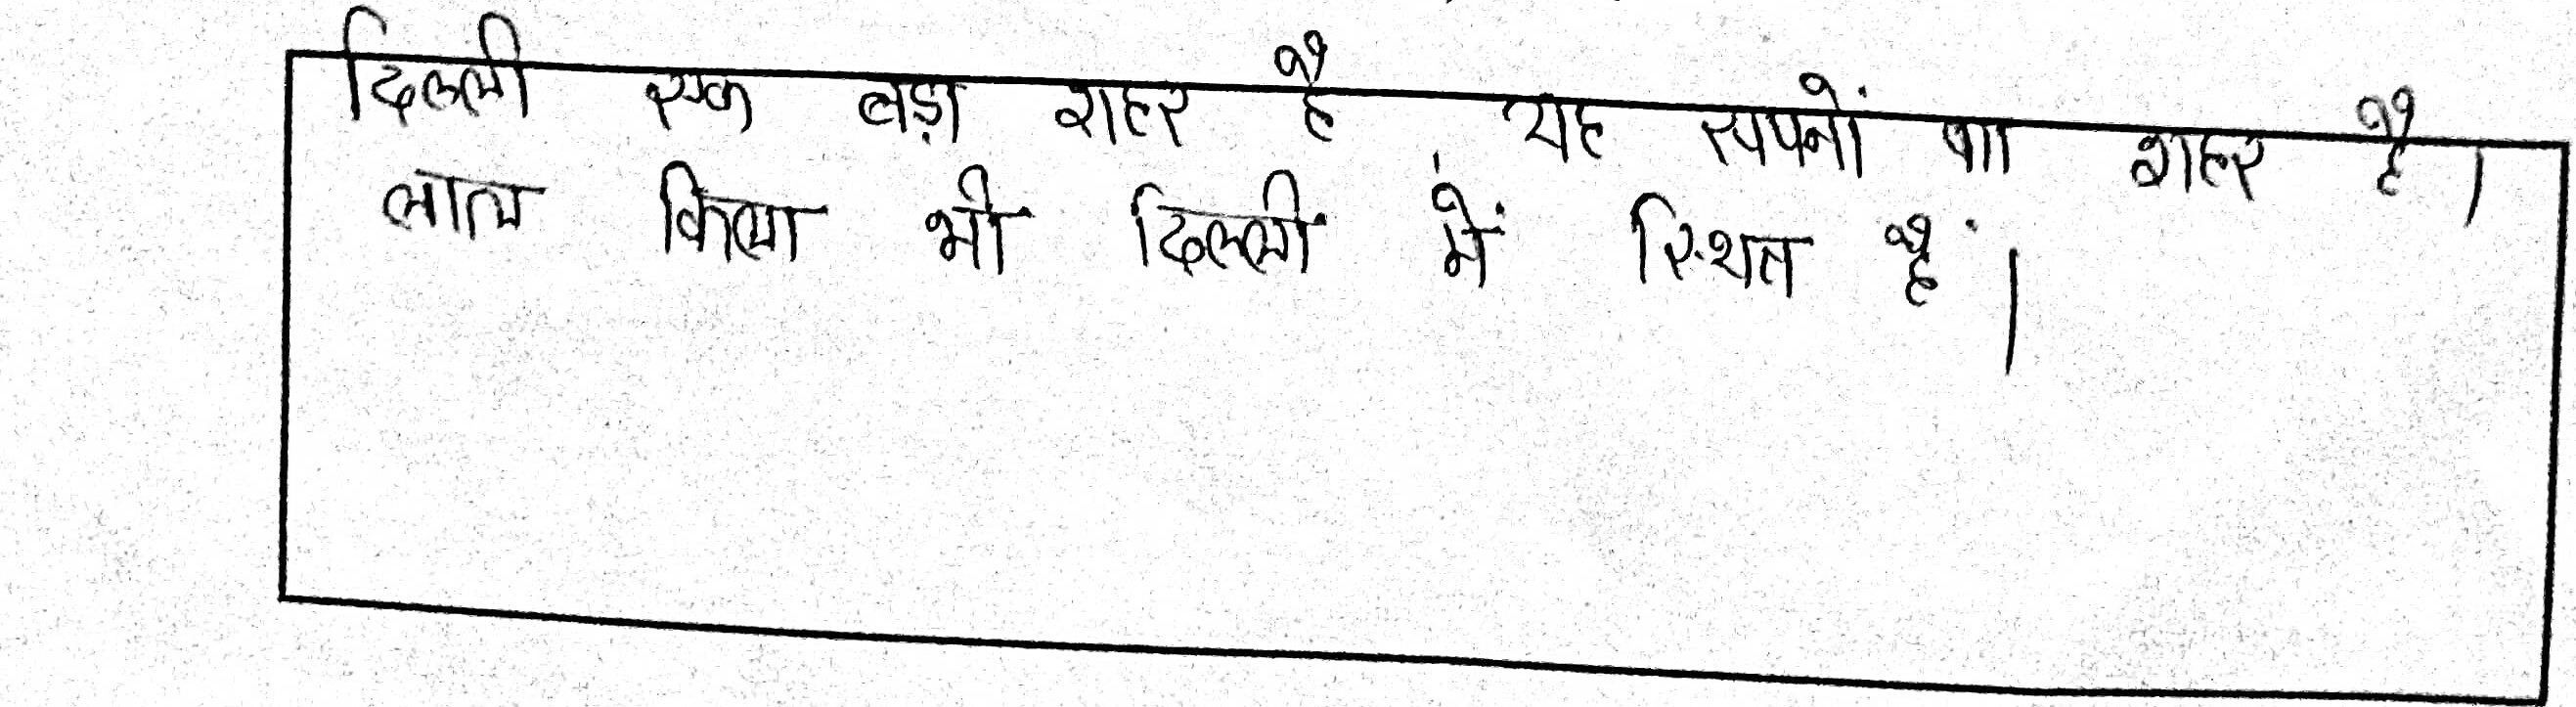 दिल्ली एक बड़ा शहर है, यह सपनों का शहर है।
लाल किला भी दिल्ली में स्थित हैं।